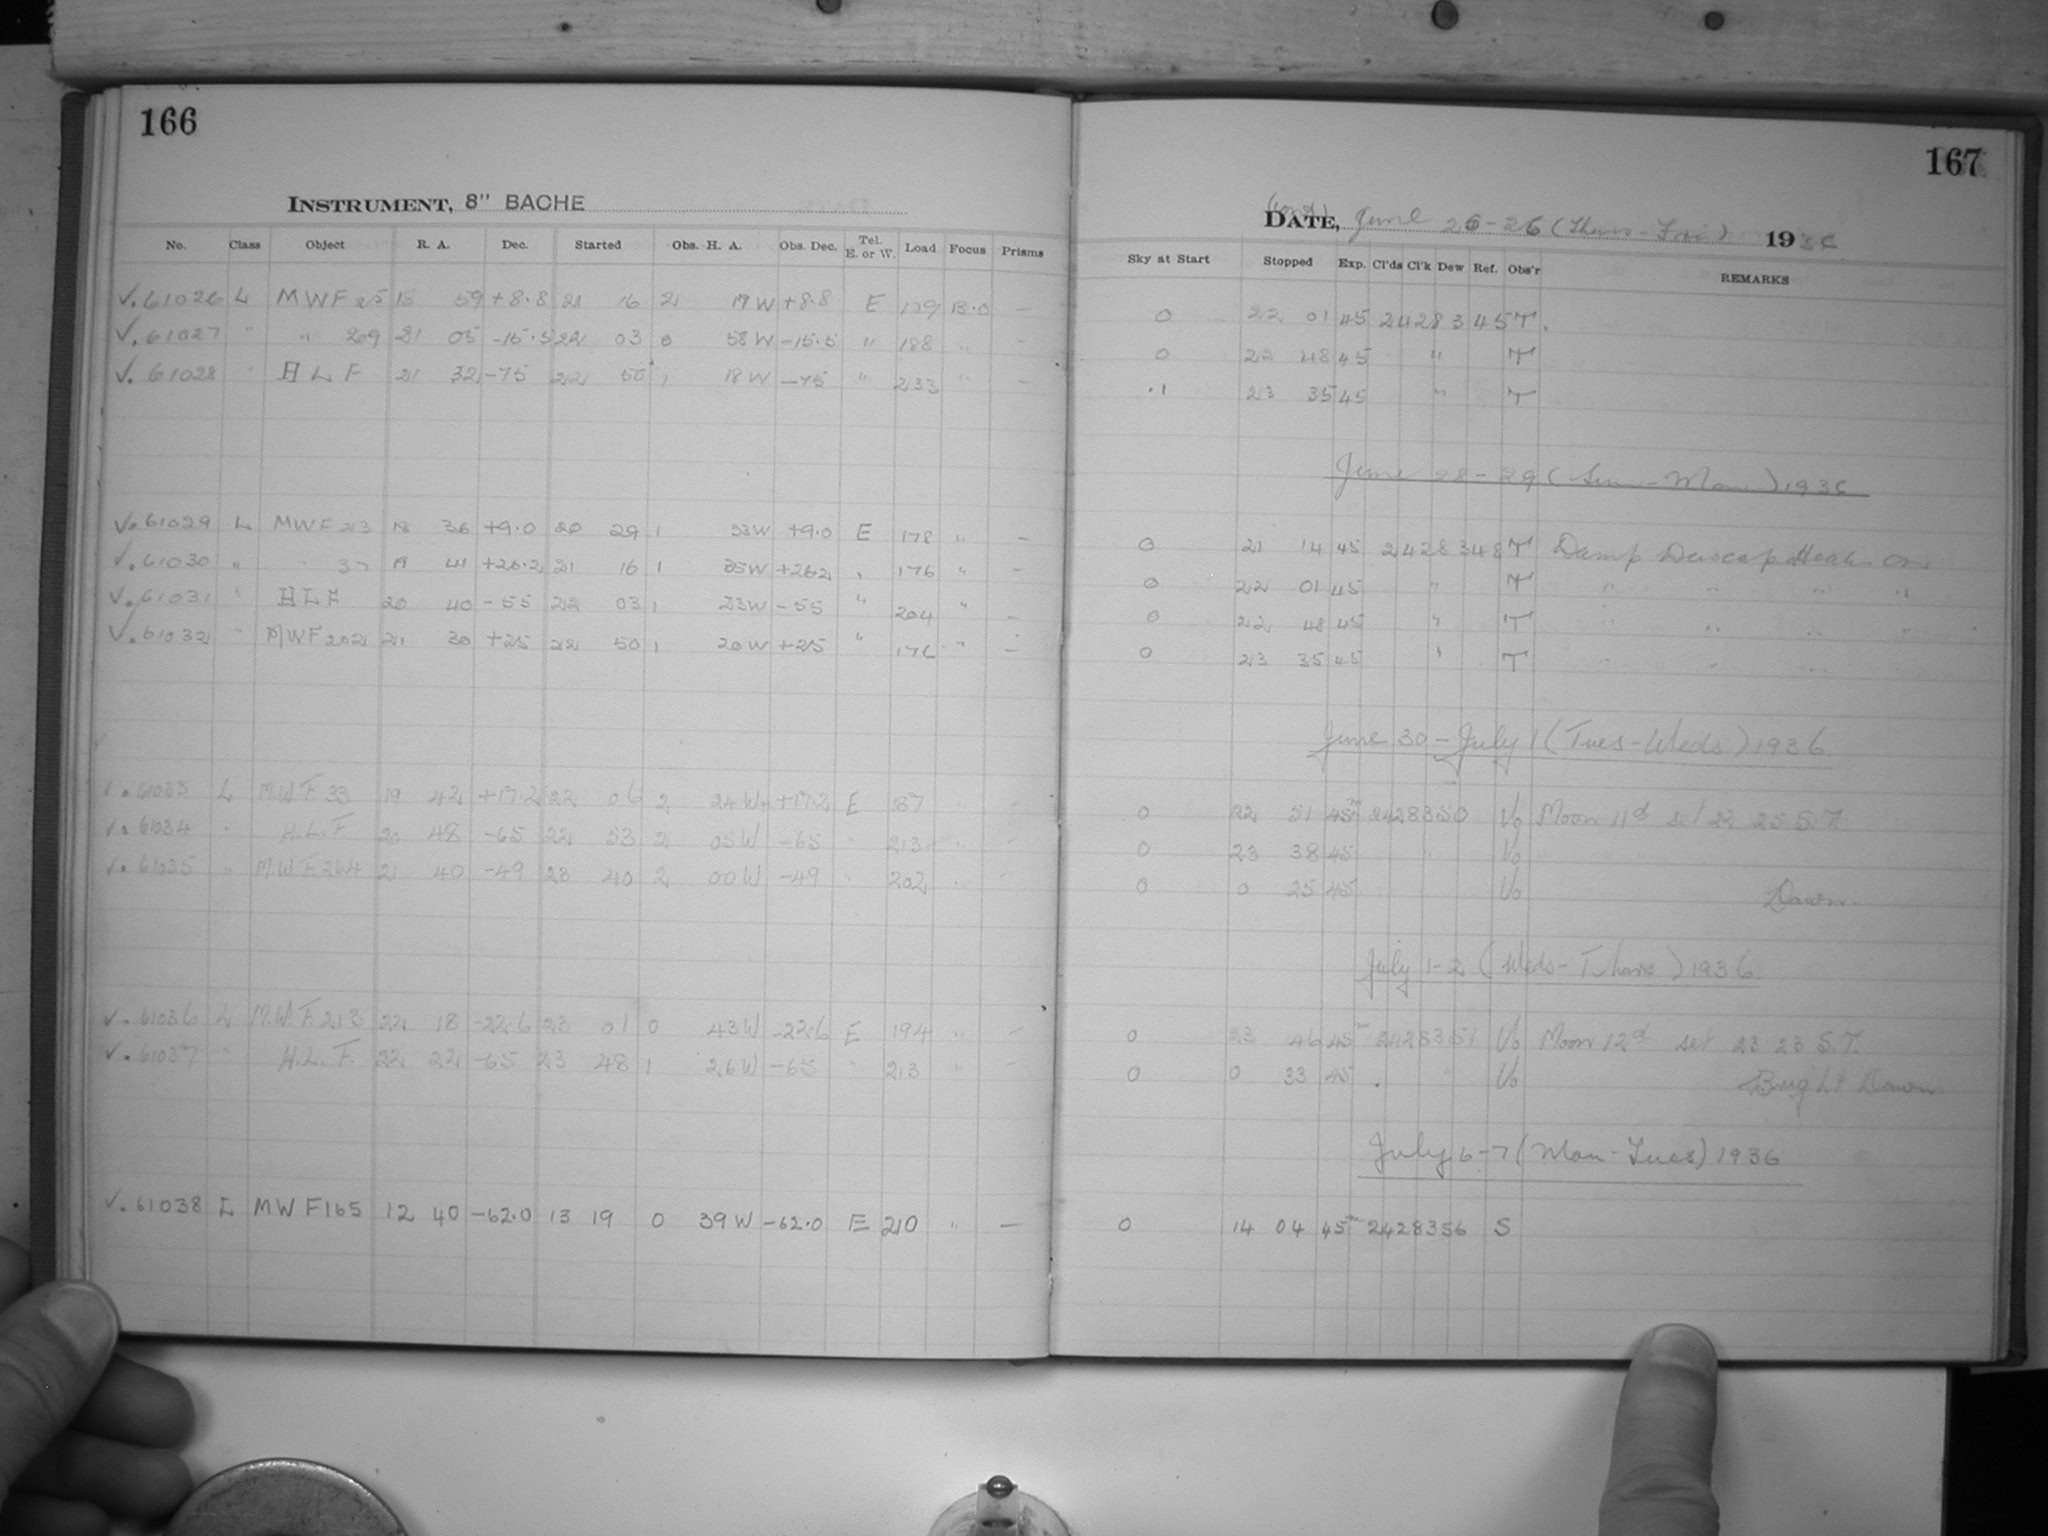 166
INSTRUMENT, 8" BACHE
No. Class Object R. A. Dec. Started Obs. H. A. Obs. Dec. Tel. E. or W. Load Focus Prisms
V. 61026 L MWF 25 18 59 +8.8 21 16 2 17 W +8.8 E 179 13.0 —
V. 61027 " " 209 21 05 -15.5 22 03 0 58 W -15.5 " 188 " —
V. 61028 " HLF 21 32 -75 22 50 1 18 W -75 " 233 " —
V. 61029 L MWF 213 18 56 +9.0 20 29 1 33 W +9.0 E 178 " —
V. 61030 " " 37 19 41 +26.2 21 16 1 35 W +26.2 " 176 " —
V. 61031 " HLF 20 40 -55 22 03 1 23 W -55 " 204 " —
V. 61032 " MWF 202 21 30 +25 22 50 1 20 W +25 " 176 " —
V. 61033 L M.W.F. 33 19 42 +17.2 22 06 2 24 W +17.2 E 187 " —
V. 61034 " H.L.F. 20 48 -65 22 53 2 05 W -65 " 213 " —
V. 61035 " M.W.F. 264 21 40 -49 23 40 2 00 W -49 " 202 " —
V. 61036 L M.W.F. 213 22 18 -22.6 23 01 0 43 W -22.6 E 194 " —
V. 61037 " H.L.F. 22 22 -65 23 48 1 26 W -65 " 213 " —
V. 61038 L MWF 165 12 40 -62.0 13 19 0 39 W -62.0 E 210 " —
167
(Cont.)
DATE, June 26-26 (Thurs-Fri) 1936
Sky at Start Stopped Exp. Cl'ds Cl'k Dew Ref. Obs'r REMARKS
0 22 01 45 2428345 T.
0 22 48 45 " T
.1 23 35 45 " T
June 28-29 (Sun-Mon) 1936
0 21 14 45 2428348 T Damp Dewcap Heat on.
0 22 01 45 " T " " " "
0 22 48 45 " T " " " "
0 23 35 45 " T " " " "
June 30 - July 1 (Tues-Weds) 1936.
0 22 51 45m 2428350 Vo Moon 11d set 22 25 S.T.
0 23 38 45 " Vo
0 0 25 45 " Vo Dawn.
July 1-2 (Weds-Thurs) 1936.
0 23 46 45m 2428351 Vo Moon 12d set 23 23 S.T.
0 0 33 45 " Vo Bright Dawn.
July 6-7 (Mon-Tues) 1936
0 14 04 45m 2428356 S